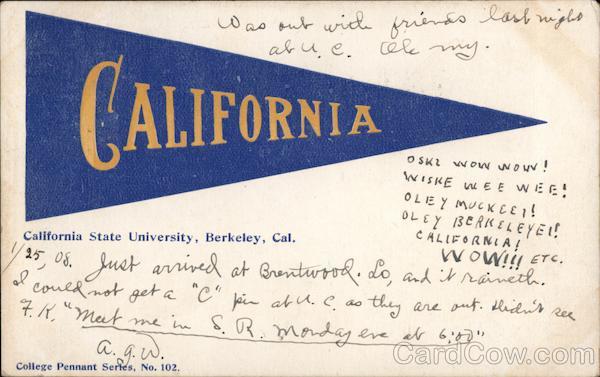 Was out with friends last night
at U. C. Oh my.
CALIFORNIA
OSKI WOW WOW!
WISKE WEE WEE!
OLEY MUCKEEI!
OLEY BERKELEYEI!
CALIFORNIA!
WOW!!! ETC.
California State University, Berkeley, Cal.
1/25, 08. Just arrived at Brentwood. Lo, and it raineth.
I could not get a "C" pin at U. C. as they are out. Didn't see
F. K. "Meet me in S. R. Monday eve at 6:00"
A. G. W.
College Pennant Series, No. 102.
CardCow.com